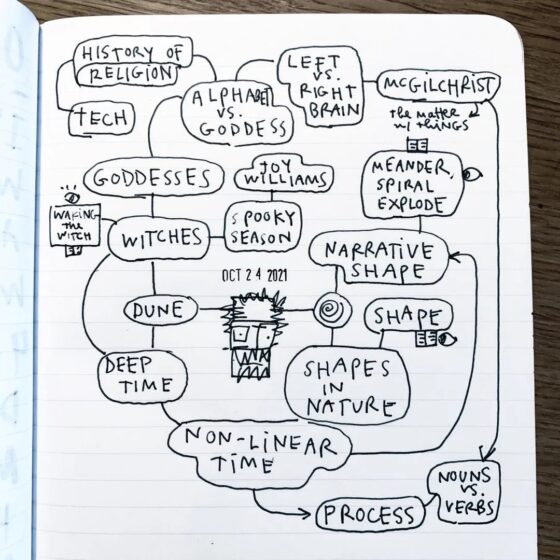 HISTORY OF
RELIGION
TECH
ALPHABET
VS.
GODDESS
LEFT
VS.
RIGHT
BRAIN
MCGILCHRIST
the matter
w/ things
MEANDER,
SPIRAL
EXPLODE
GODDESSES
JOY
WILLIAMS
WAKING
the
WITCH
WITCHES
SPOOKY
SEASON
NARRATIVE
SHAPE
OCT 24 2021
DUNE
SHAPE
DEEP
TIME
SHAPES
IN
NATURE
NON-LINEAR
TIME
NOUNS
VS.
VERBS
PROCESS